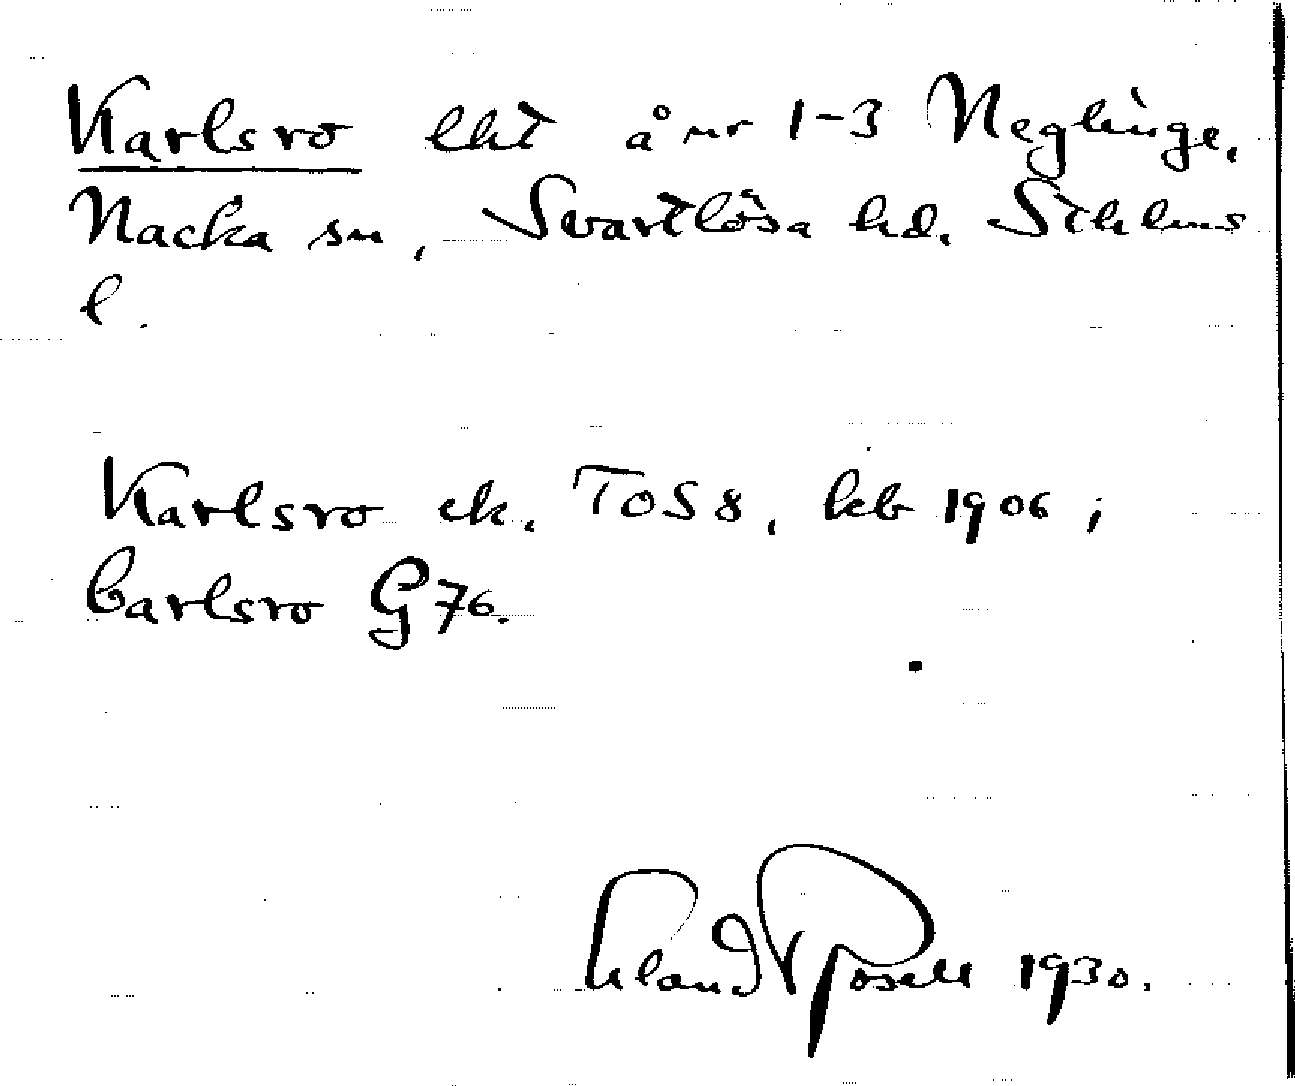 Karlsro lht å nr 1-3 Neglinge,
Nacka sn, Svartlösa hd. Sthlms
l.
Karlsro ek. TOS 8, kb 1906;
Carlsro G 76.
Erland Rosell 1930.